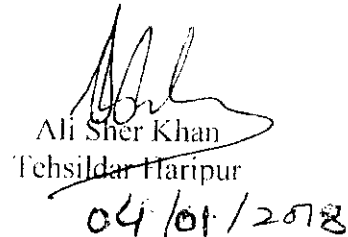 Ali Sher Khan
Tehsildar Haripur
04/01/2018